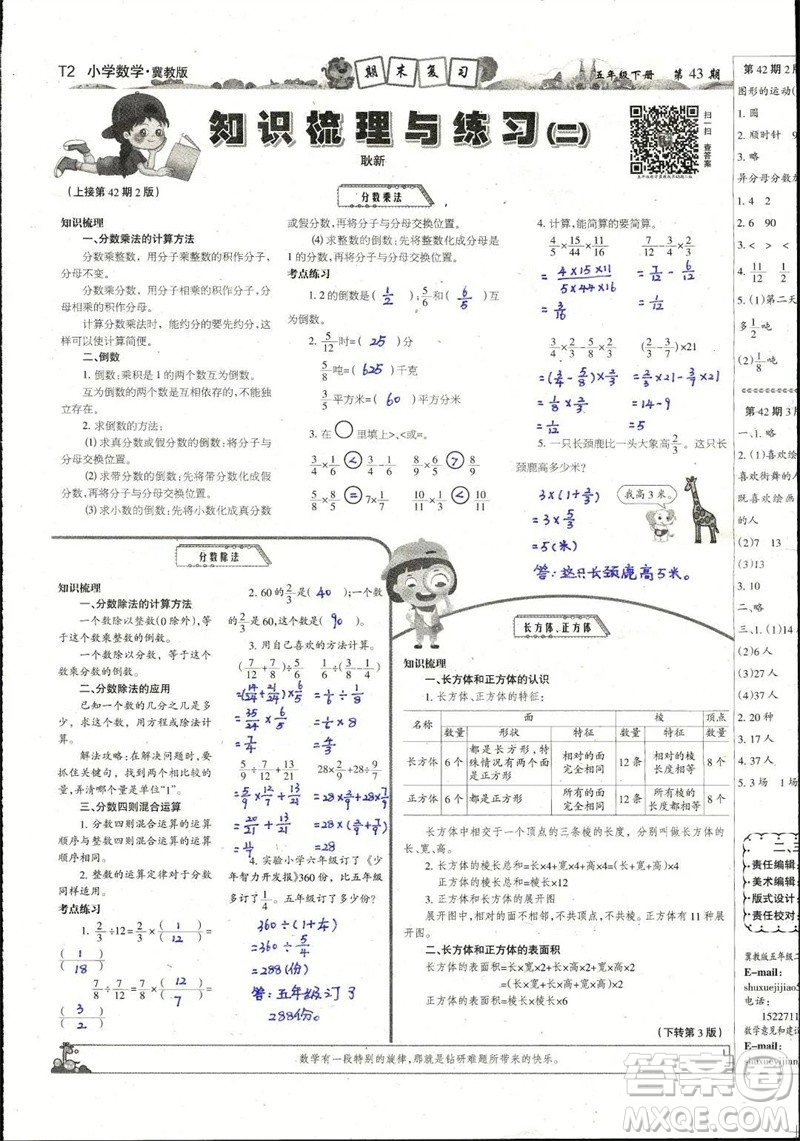 T2 小学数学·冀教版
期末复习
五年级下册 第43期
知识梳理与练习(二)
耿新
扫一扫 查答案
(上接第42期2版)
分数乘法
知识梳理
一、分数乘法的计算方法
分数乘整数，用分子乘整数的积作分子，分
母不变。
分数乘分数，用分子相乘的积作分子，分
母相乘的积作分母。
计算分数乘法时，能约分的要先约分，这
样可以使计算简便。
二、倒数
1. 倒数：乘积是1的两个数互为倒数。
互为倒数的两个数是相互依存的，不能独
立存在。
2. 求倒数的方法：
(1) 求真分数或假分数的倒数：将分子与
分母交换位置。
(2) 求带分数的倒数：将带分数化成假分
数，再将分子与分母交换位置。
(3) 求小数的倒数：将小数化成真分数
或假分数，再将分子与分母交换位置。
(4) 求整数的倒数：先将整数化成分母是
1的分数，再将分子与分母交换位置。
考点练习
1. 2的倒数是( 1/2 )，5/6和( 6/5 )互
为倒数。
2. 5/12时=( 25 )分
5/8吨=( 625 )千克
3/5平方米=( 60 )平方分米
3. 在○里填上>、<或=。
3/4×1/4 < 3/4　9/16×2/3 < 9/16
5/8×7 = 7×5/8　10/11×6/5 > 10/11
4. 计算，能简算的要简算。
4/5×15/44×11/16
= 4×15×11/5×44×16
= 3/16
7/12-5/16×8/15
= 7/12-1/6
(3/4-5/8)×2/3
= (3/4-5/8)×2/3
= 1/8×2/3
= 1/12
= 14-9
5. 一只长颈鹿比一头大象高2/3。这只长
颈鹿高多少米?
我高3米。
3×(1+2/3)
= 3×5/3
= 5(米)
答：这只长颈鹿高5米。
分数除法
知识梳理
一、分数除法的计算方法
一个数除以整数(0除外)，等于这
个数乘整数的倒数。
一个数除以分数，等于这个数乘分
数的倒数。
二、分数除法的应用
已知一个数的几分之几是多
少，求这个数，用方程或除法计
算。
解法攻略：在解决问题时，要
抓住关键句，找到两个相比较的
量，弄清哪个量是单位“1”。
三、分数四则混合运算
1. 分数四则混合运算的运算
顺序与整数四则混合运算的运算
顺序相同。
2. 整数的运算定律对于分数
同样适用。
考点练习
1. 2/3÷12=2/3×( 1 )/( 12 )=
( 1 )/( 18 )
7/8÷7/12=7/8×( 12 )/( 7 )=
( 3 )/( 2 )
2. 60的2/3是( 40 )；一个数
的2/3是60，这个数是( 90 )。
3. 用自己喜欢的方法计算。
= (14/24+21/24)×6/5
= 35/24×6/5
= 7/4
= 1/6÷1/8
= 1/6×8
= 4/3
5/9÷7/12+7/13
28×2/9+28÷9/7
= 5/9×12/7+7/13
= 28×2/9+28×7/9
= 20/21+7/13
= 28
4. 实验小学六年级订了《少
年智力开发报》360份，比五年级
多订了1/4。五年级订了多少份?
360÷(1+1/4)
= 360÷5/4
= 288(份)
答：五年级订了
288份。
长方体、正方体
知识梳理
一、长方体和正方体的认识
1. 长方体、正方体的特征：
名称 面 棱 顶点
数量 形状 特征 数量 特征 数量
长方体 6个 都是长方形，特殊情况有两个面是正方形 相对的面完全相同 12条 相对的棱长度相等 8个
正方体 6个 都是正方形 所有的面完全相同 12条 所有的棱长度相等 8个
长方体中相交于一个顶点的三条棱的长度，分别叫做长方体的
长、宽、高。
2. 长方体的棱长总和=(长+宽+高)×4
正方体的棱长总和=棱长×12
3. 长方体和正方体的展开图
展开图中，相对的面不相邻，不共顶点，不共棱。正方体有11种展
开图。
二、长方体和正方体的表面积
长方体的表面积=长×宽×2+长×高×2+宽×高×2
=(长×宽+长×高+宽×高)×2
正方体的表面积=棱长×棱长×6
(下转第3版)
数学有一段特别的旋律，那就是钻研难题所带来的快乐。
第42期2版
图形的运动(
1. 圆
2. 顺时针
3. 略
异分母分数
1. 略
2. 6 90
3. > <
5. (1)第二天
多1/4吨
(2)1/8吨
第42期3版
一、1. 略
2. (1)喜欢绘
喜欢街舞的人
既喜欢绘画
的人
(2)7
(3)13
3. 10
三、1. (1)14
(2)6人
(3)27人
(4)37人
2. 20种
3. 17人
4. 37人
5. 3场 1场
责任编辑：
美术编辑：
版式设计：
责任校对：
冀教版五年级二
E-mail：
shuxuejijiao5
电话：
1522711
数学意见和建议
E-mail：
shuxueyijian
答案圈
MXQE.COM